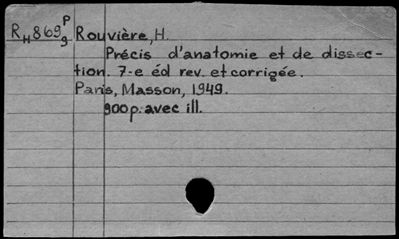 R_H869_9^P Rouvière, H.
Précis d'anatomie et de dissec-
tion. 7-e éd rev. et corrigée.
Paris, Masson, 1949.
900p. avec ill.